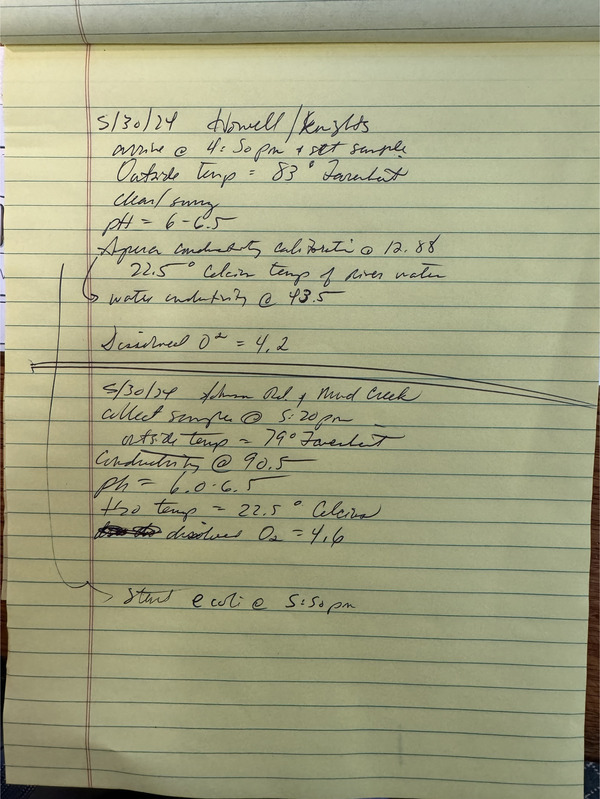 5/30/24 Howell/Knights
arrive @ 4:50pm + set sample
Outside temp = 83° Farenheit
clear/sunny
pH = 6-6.5
Apera conductivity calibration @ 12.88
22.5° Celcius temp of river water
water conductivity @ 43.5
Dissolved O² = 4.2
5/30/24 Rd & Mud Creek
collect samples @ 5:20pm
outside temp = 79° Farenheit
Conductivity @ 90.5
Ph = 6.0-6.5
H20 temp = 22.5° Celcius
dissolved O₂ = 4.6
Start e coli @ 5:50pm